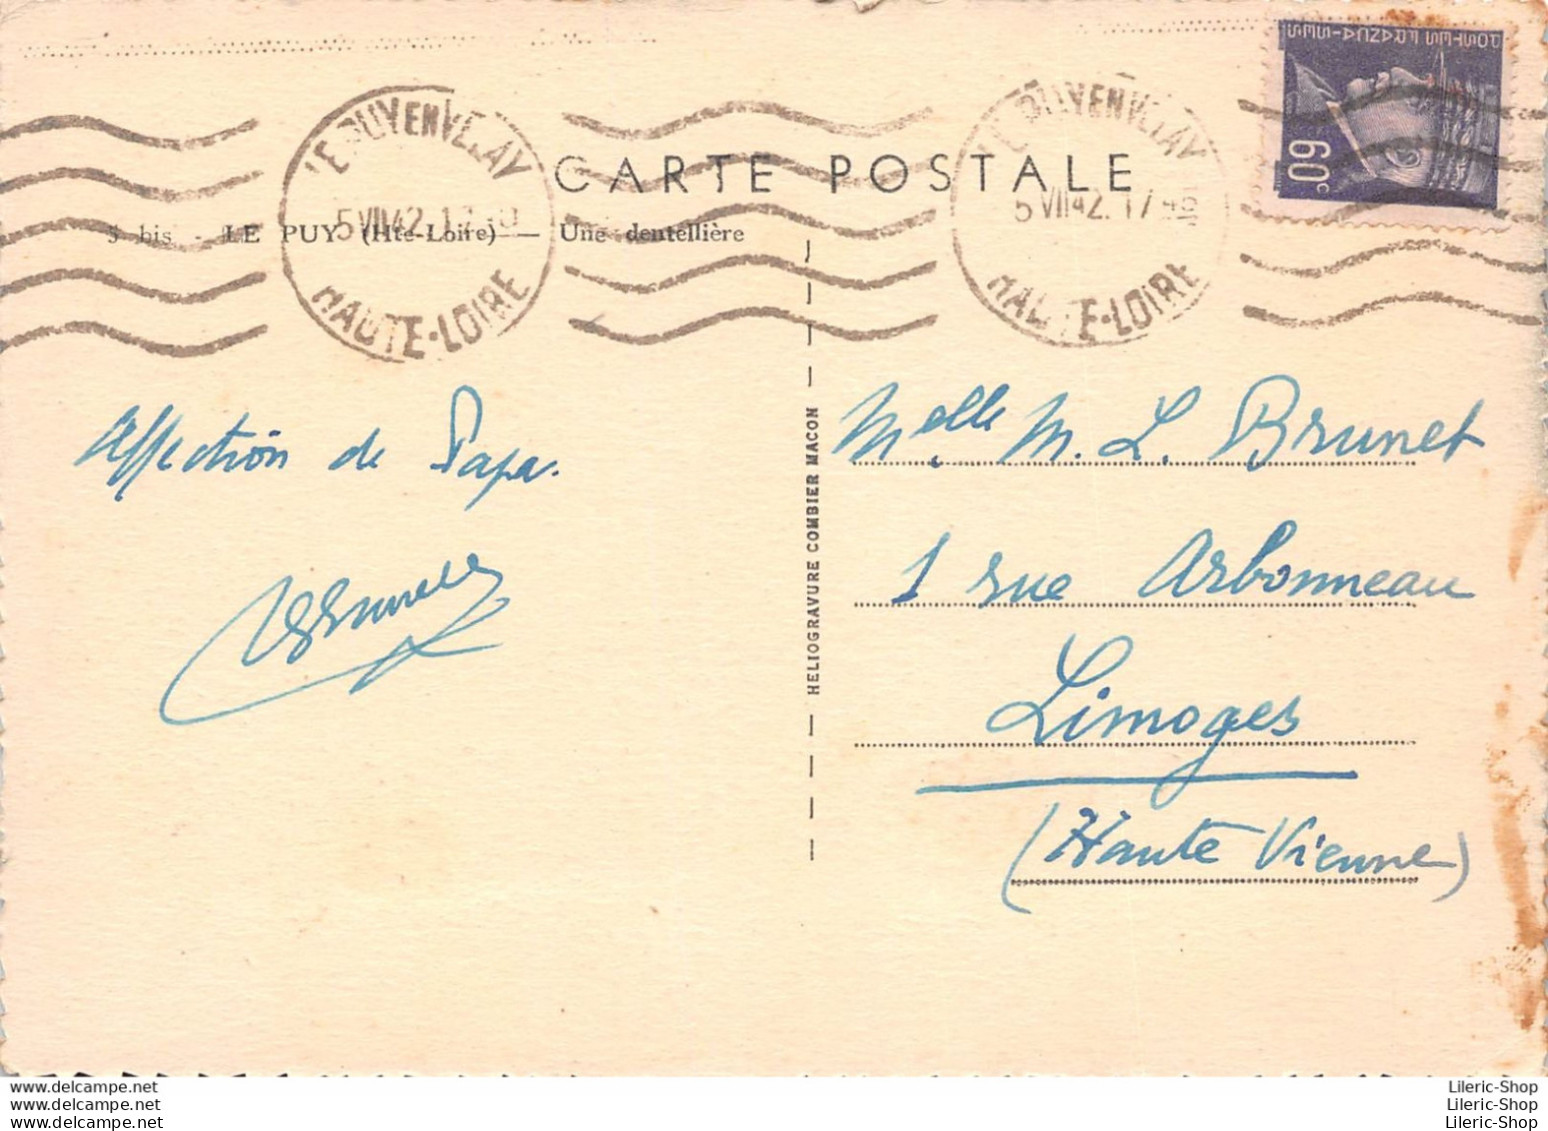 POSTES FRANÇAISES
60c
LE PUY EN VELAY
5 VII 42. 17
HAUTE-LOIRE
LE PUY EN VELAY
5 VII 42. 17
HAUTE-LOIRE
CARTE POSTALE
5 bis - LE PUY (Hte-Loire) — Une dentellière
Affection de Papa.
HELIOGRAVURE COMBIER MACON
Melle M. L. Brunet
1 rue Arbonneau
Limoges
(Haute Vienne)
delcampe.net
delcampe.net
delcampe.net
Lileric-Shop
Lileric-Shop
Lileric-Shop